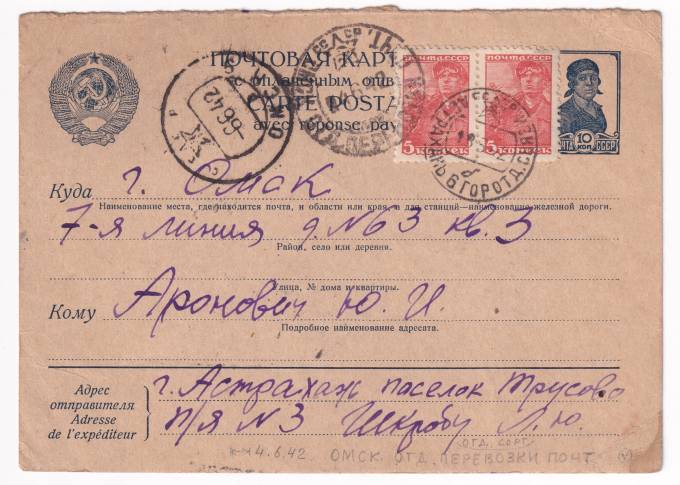 ПОЧТОВАЯ КАРТ
с оплаченным отв
CARTE POSTA
avec réponse pay
ПОЧТА СССР
5 КОПЕЕК
ПОЧТА СССР
5 КОПЕЕК
10 КОП.
ПОЧТА СССР
ОМСК
8 6 42
АСТРАХАНЬ 6 ГОРОТД. С
Куда г. Омск
Наименование места, где находится почта, и области или края, а для станций—наименование железной дороги.
7-я линия д. №63 кв. 3
Район, село или деревня.
Улица, № дома и квартиры.
Кому Аронович Ю. И.
Подробное наименование адресата.
Адрес отправителя г. Астрахань поселок Трусово
Adresse de l'expéditeur п/я №3 Шкробу Л. Ю.
4.6.42 ОМСК. ОТД. ПЕРЕВОЗКИ ПОЧТ
ОТД. СОРТ.